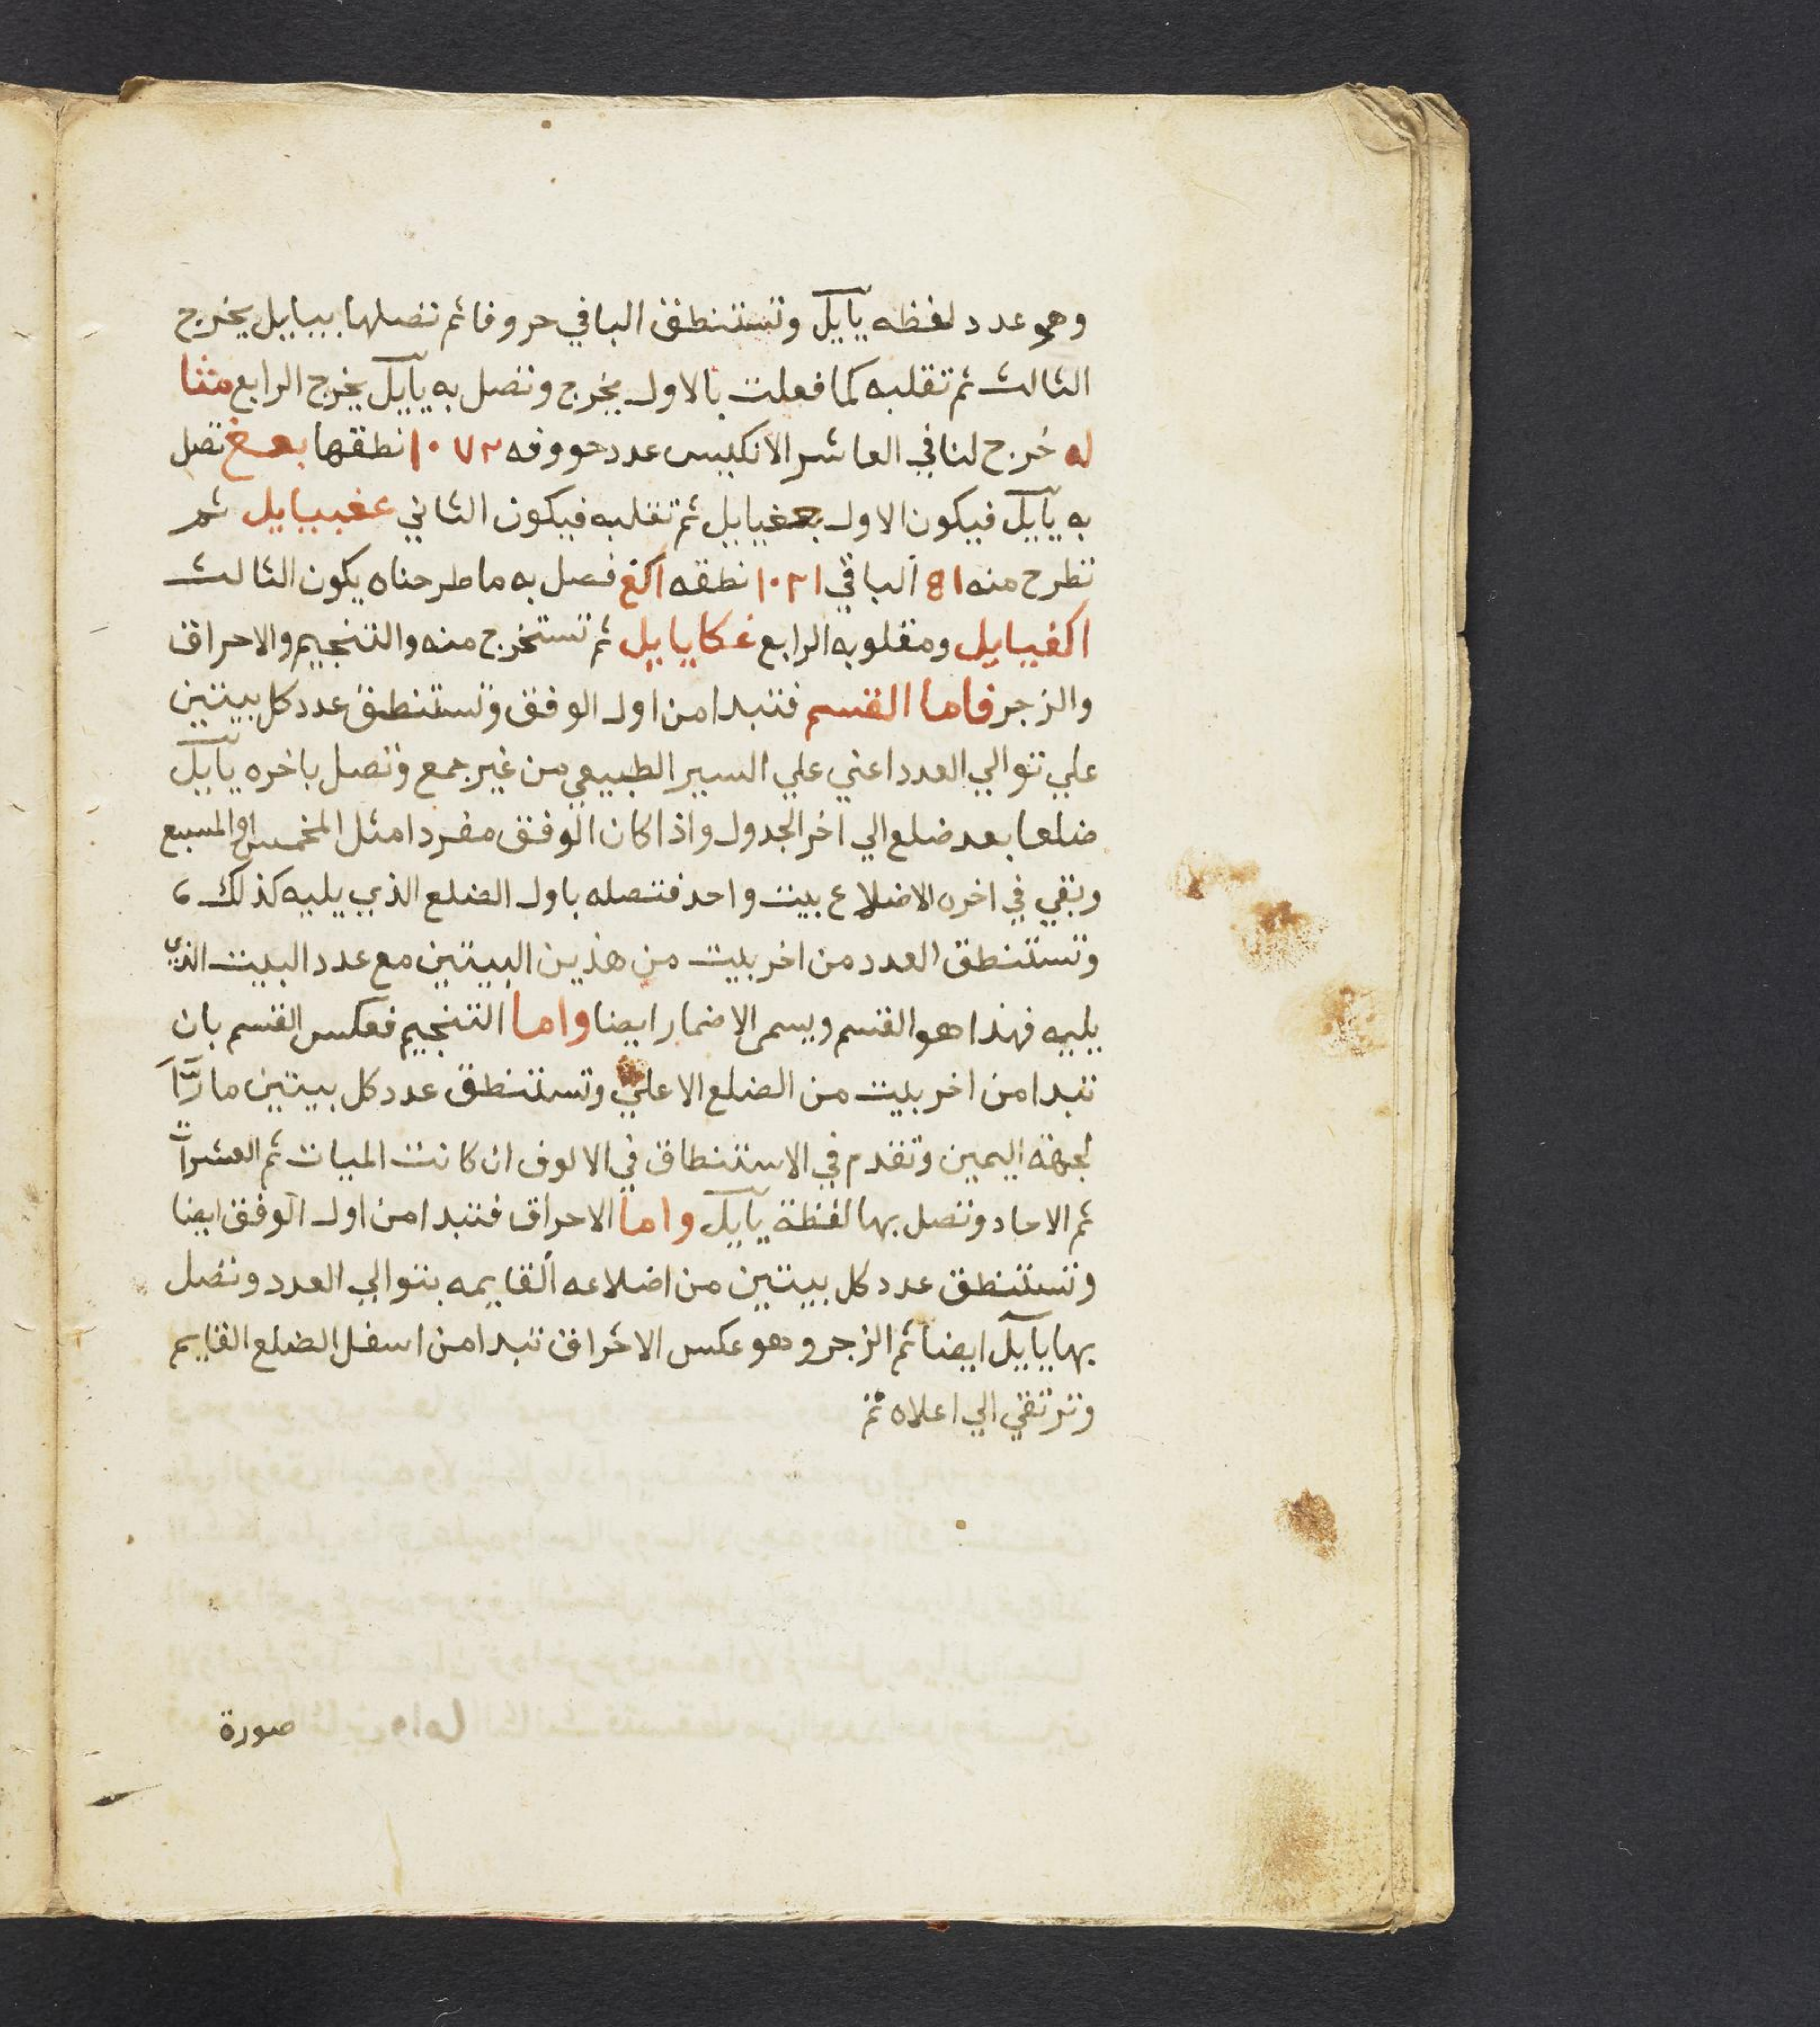 وهو عدد لفظه يآييل وتستنطق الباقي حروفا ثم تصلها بيباييل يخرج
الثالث ثم تقلبه كما فعلت بالاول يخرج وتصل به يآييل يخرج الرابع مثا
له خُرج لنا في العاشر الانكيس عدد حروفه ١٠٧٢ نطقها بعغ تصل
به يآييل فيكون الاول بعغياييل ثم تقلبه فيكون الثاني عغبياييل ثم
تطرح منه 81 الباقي ١٠٢١ نطقه اكغ فصل به ما طرحناه يكون الثالث
اكغياييل ومقلوبه الرابع غكاياييل ثم تستخرج منه والتنجيم والاحراق
والزجر فاما القسم فتبدا من اول الوفق وتستنطق عدد كل بيتين
علي توالي العدد اعني علي السير الطبيعي من غير جمع وتصل باخره يآييل
ضلعا بعد ضلع الي اخر الجدول واذا كان الوفق مفردا مثل المخمس والمسبع
وبقي في اخره الاضلاع بيت واحد فتصله باول الضلع الذي يليه كذلك
وتستنطق العدد من اخر بيت من هذين البيتين مع عدد البيت الذي
يليه فهذا هو القسم ويسمى الاضمار ايضا واما التنجيم فعكس القسم بان
تبدا من اخر بيت من الضلع الاعلي وتستنطق عدد كل بيتين مارّاً
لجهة اليمين وتقدم في الاستنطاق في الالوف ان كانت الميات ثم العشرات
ثم الاحاد وتصل بها لفظة يآييل واما الاحراق فتبدا من اول الوفق ايضا
وتستنطق عدد كل بيتين من اضلاعه القايمه بتوالي العدد وتصل
بها يآييل ايضا ثم الزجر وهو عكس الاحراق تبدا من اسفل الضلع القايم
وترتقي الي اعلاه ثم
صورة